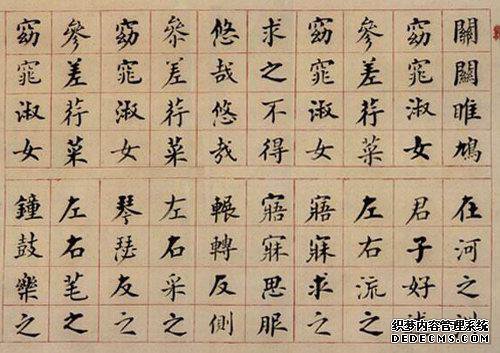 關關雎鳩在河之洲
窈窕淑女君子好逑
參差荇菜左右流之
窈窕淑女寤寐求之
求之不得寤寐思服
悠哉悠哉輾轉反側
參差荇菜左右采之
窈窕淑女琴瑟友之
參差荇菜左右芼之
窈窕淑女鐘鼓樂之
织梦内容管理系统
DEDECMS.COM